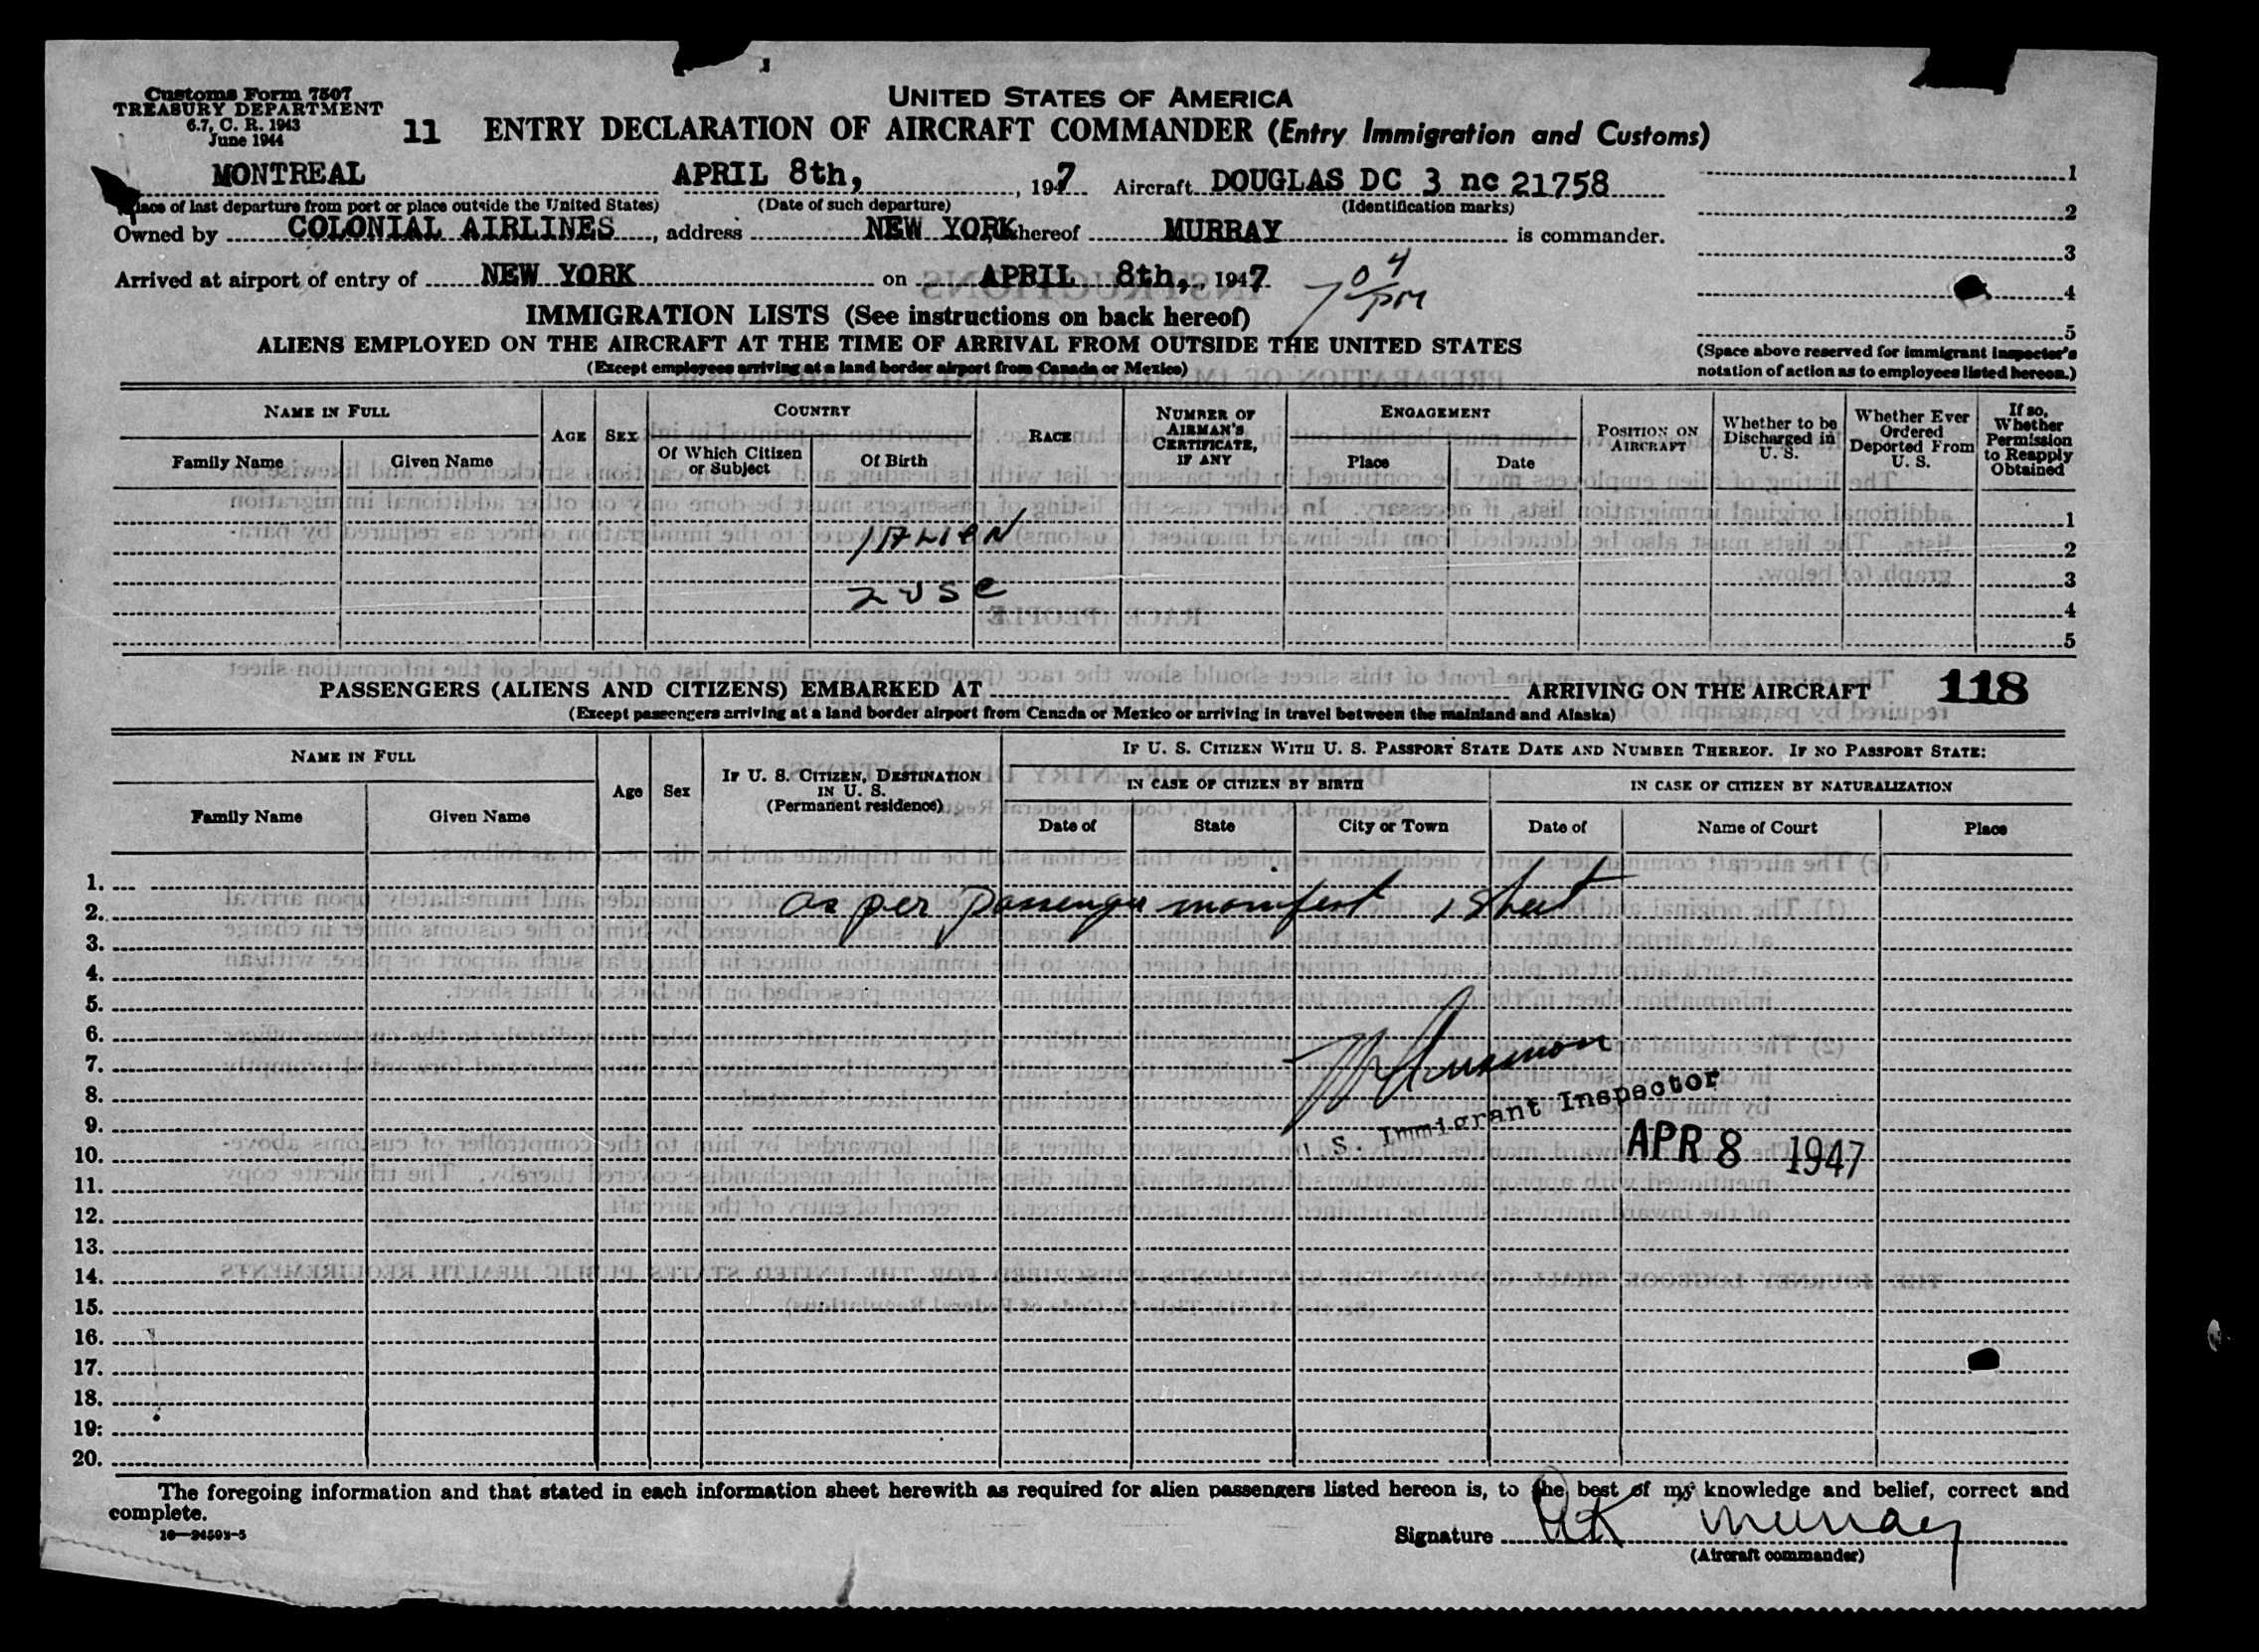 Customs Form 7507
TREASURY DEPARTMENT
6.7, C. R. 1943
June 1944
UNITED STATES OF AMERICA
11 ENTRY DECLARATION OF AIRCRAFT COMMANDER (Entry Immigration and Customs)
MONTREAL APRIL 8th, , 1947 Aircraft DOUGLAS DC 3 nc 21758
(Place of last departure from port or place outside the United States) (Date of such departure) (Identification marks)
Owned by COLONIAL AIRLINES, address NEW YORK hereof MURRAY is commander.
Arrived at airport of entry of NEW YORK on APRIL 8th,, 1947 7 04 PM
1
2
3
4
5
(Space above reserved for immigrant inspector's
notation of action as to employees listed hereon.)
IMMIGRATION LISTS (See instructions on back hereof)
ALIENS EMPLOYED ON THE AIRCRAFT AT THE TIME OF ARRIVAL FROM OUTSIDE THE UNITED STATES
(Except employees arriving at a land border airport from Canada or Mexico)
NAME IN FULL
Family Name Given Name
AGE SEX
COUNTRY
Of Which Citizen or Subject Of Birth
RACE
NUMBER OF AIRMAN'S CERTIFICATE, IF ANY
ENGAGEMENT
Place Date
POSITION ON AIRCRAFT
Whether to be Discharged in U. S.
Whether Ever Ordered Deported From U. S.
If so, Whether Permission to Reapply Obtained
1
1 ALIEN
2
3
2 USC
4
5
PASSENGERS (ALIENS AND CITIZENS) EMBARKED AT ARRIVING ON THE AIRCRAFT 118
(Except passengers arriving at a land border airport from Canada or Mexico or arriving in travel between the mainland and Alaska)
NAME IN FULL
Family Name Given Name
Age Sex
IF U. S. CITIZEN, DESTINATION IN U. S. (Permanent residence)
IF U. S. CITIZEN WITH U. S. PASSPORT STATE DATE AND NUMBER THEREOF. IF NO PASSPORT STATE:
IN CASE OF CITIZEN BY BIRTH IN CASE OF CITIZEN BY NATURALIZATION
Date of State City or Town Date of Name of Court Place
1.
2. as per passenger manifest 1 sheet
3.
4.
5.
6.
7.
8.
9. U. S. Immigrant Inspector
10. APR 8 1947
11.
12.
13.
14.
15.
16.
17.
18.
19.
20.
The foregoing information and that stated in each information sheet herewith as required for alien passengers listed hereon is, to the best of my knowledge and belief, correct and
complete.
Signature RK Murray
(Aircraft commander)